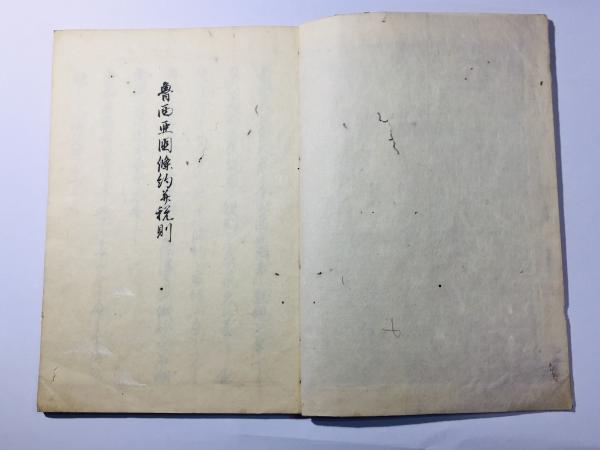 魯西亜国條約并税則